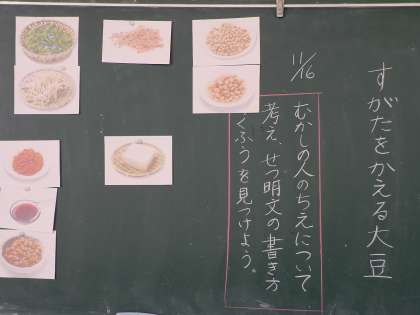 すがたをかえる大豆
11/16
むかしの人のちえについて
考え、せつ明文の書き方
くふうを見つけよう。